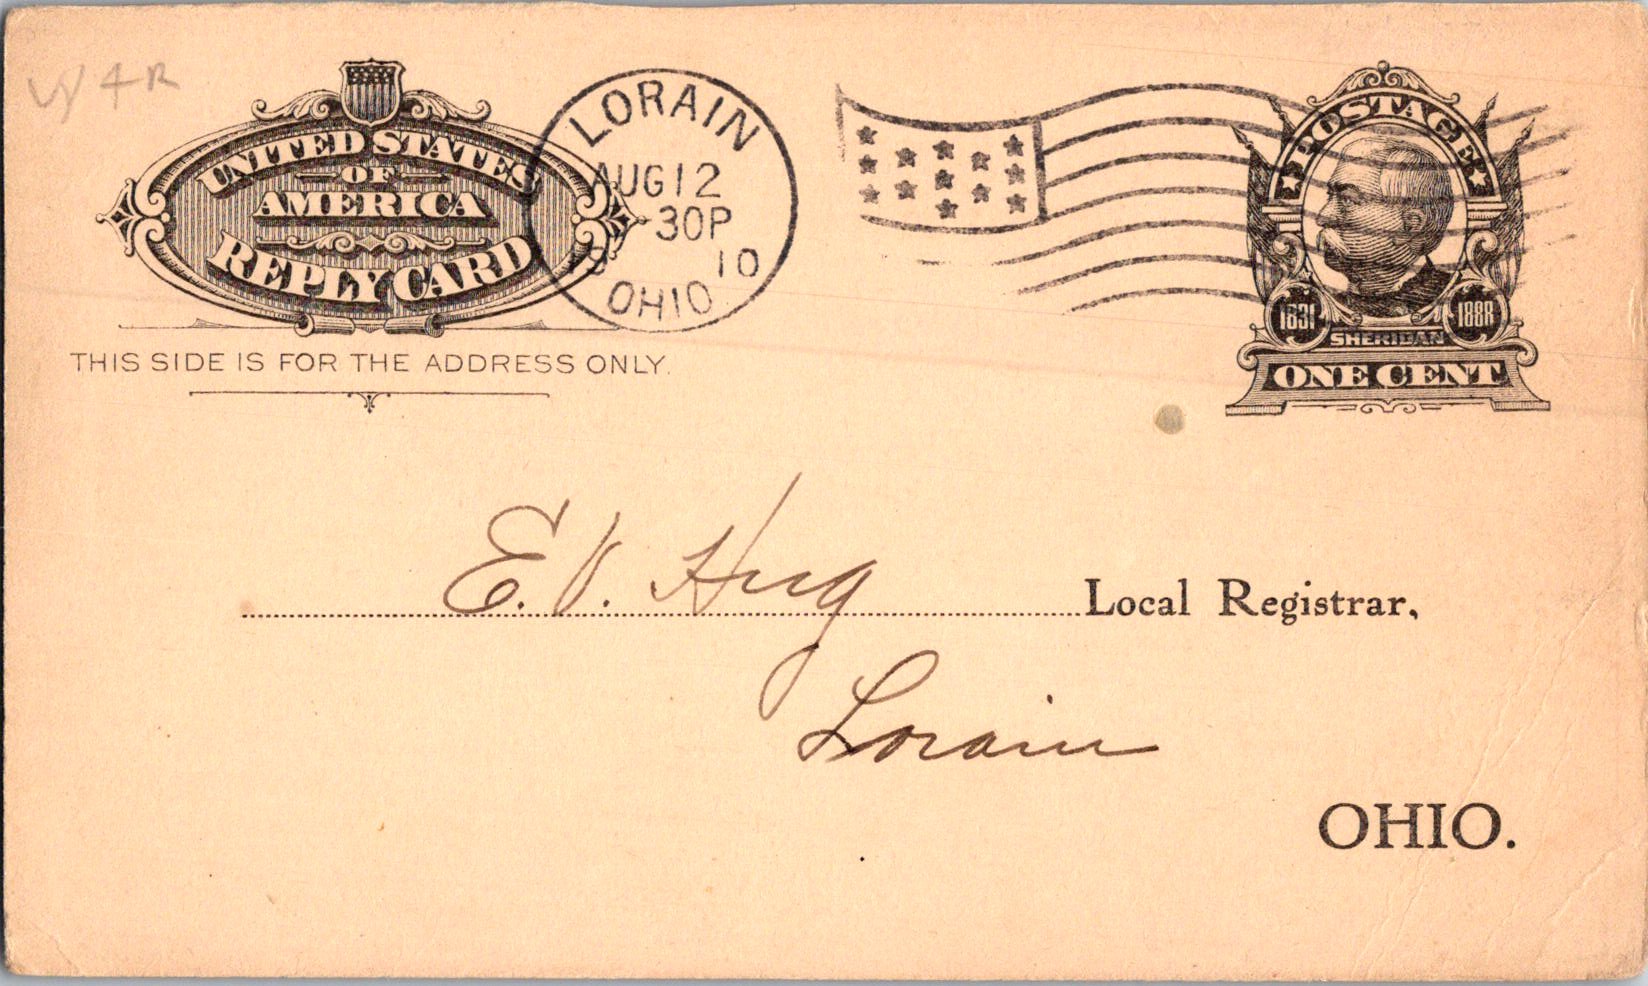 UNITED STATES
OF
AMERICA
REPLY CARD
THIS SIDE IS FOR THE ADDRESS ONLY.
LORAIN
AUG 12
-30P
10
OHIO
POSTAGE
1831 1888
SHERIDAN
ONE CENT
E. V. Hug Local Registrar,
Lorain
OHIO.